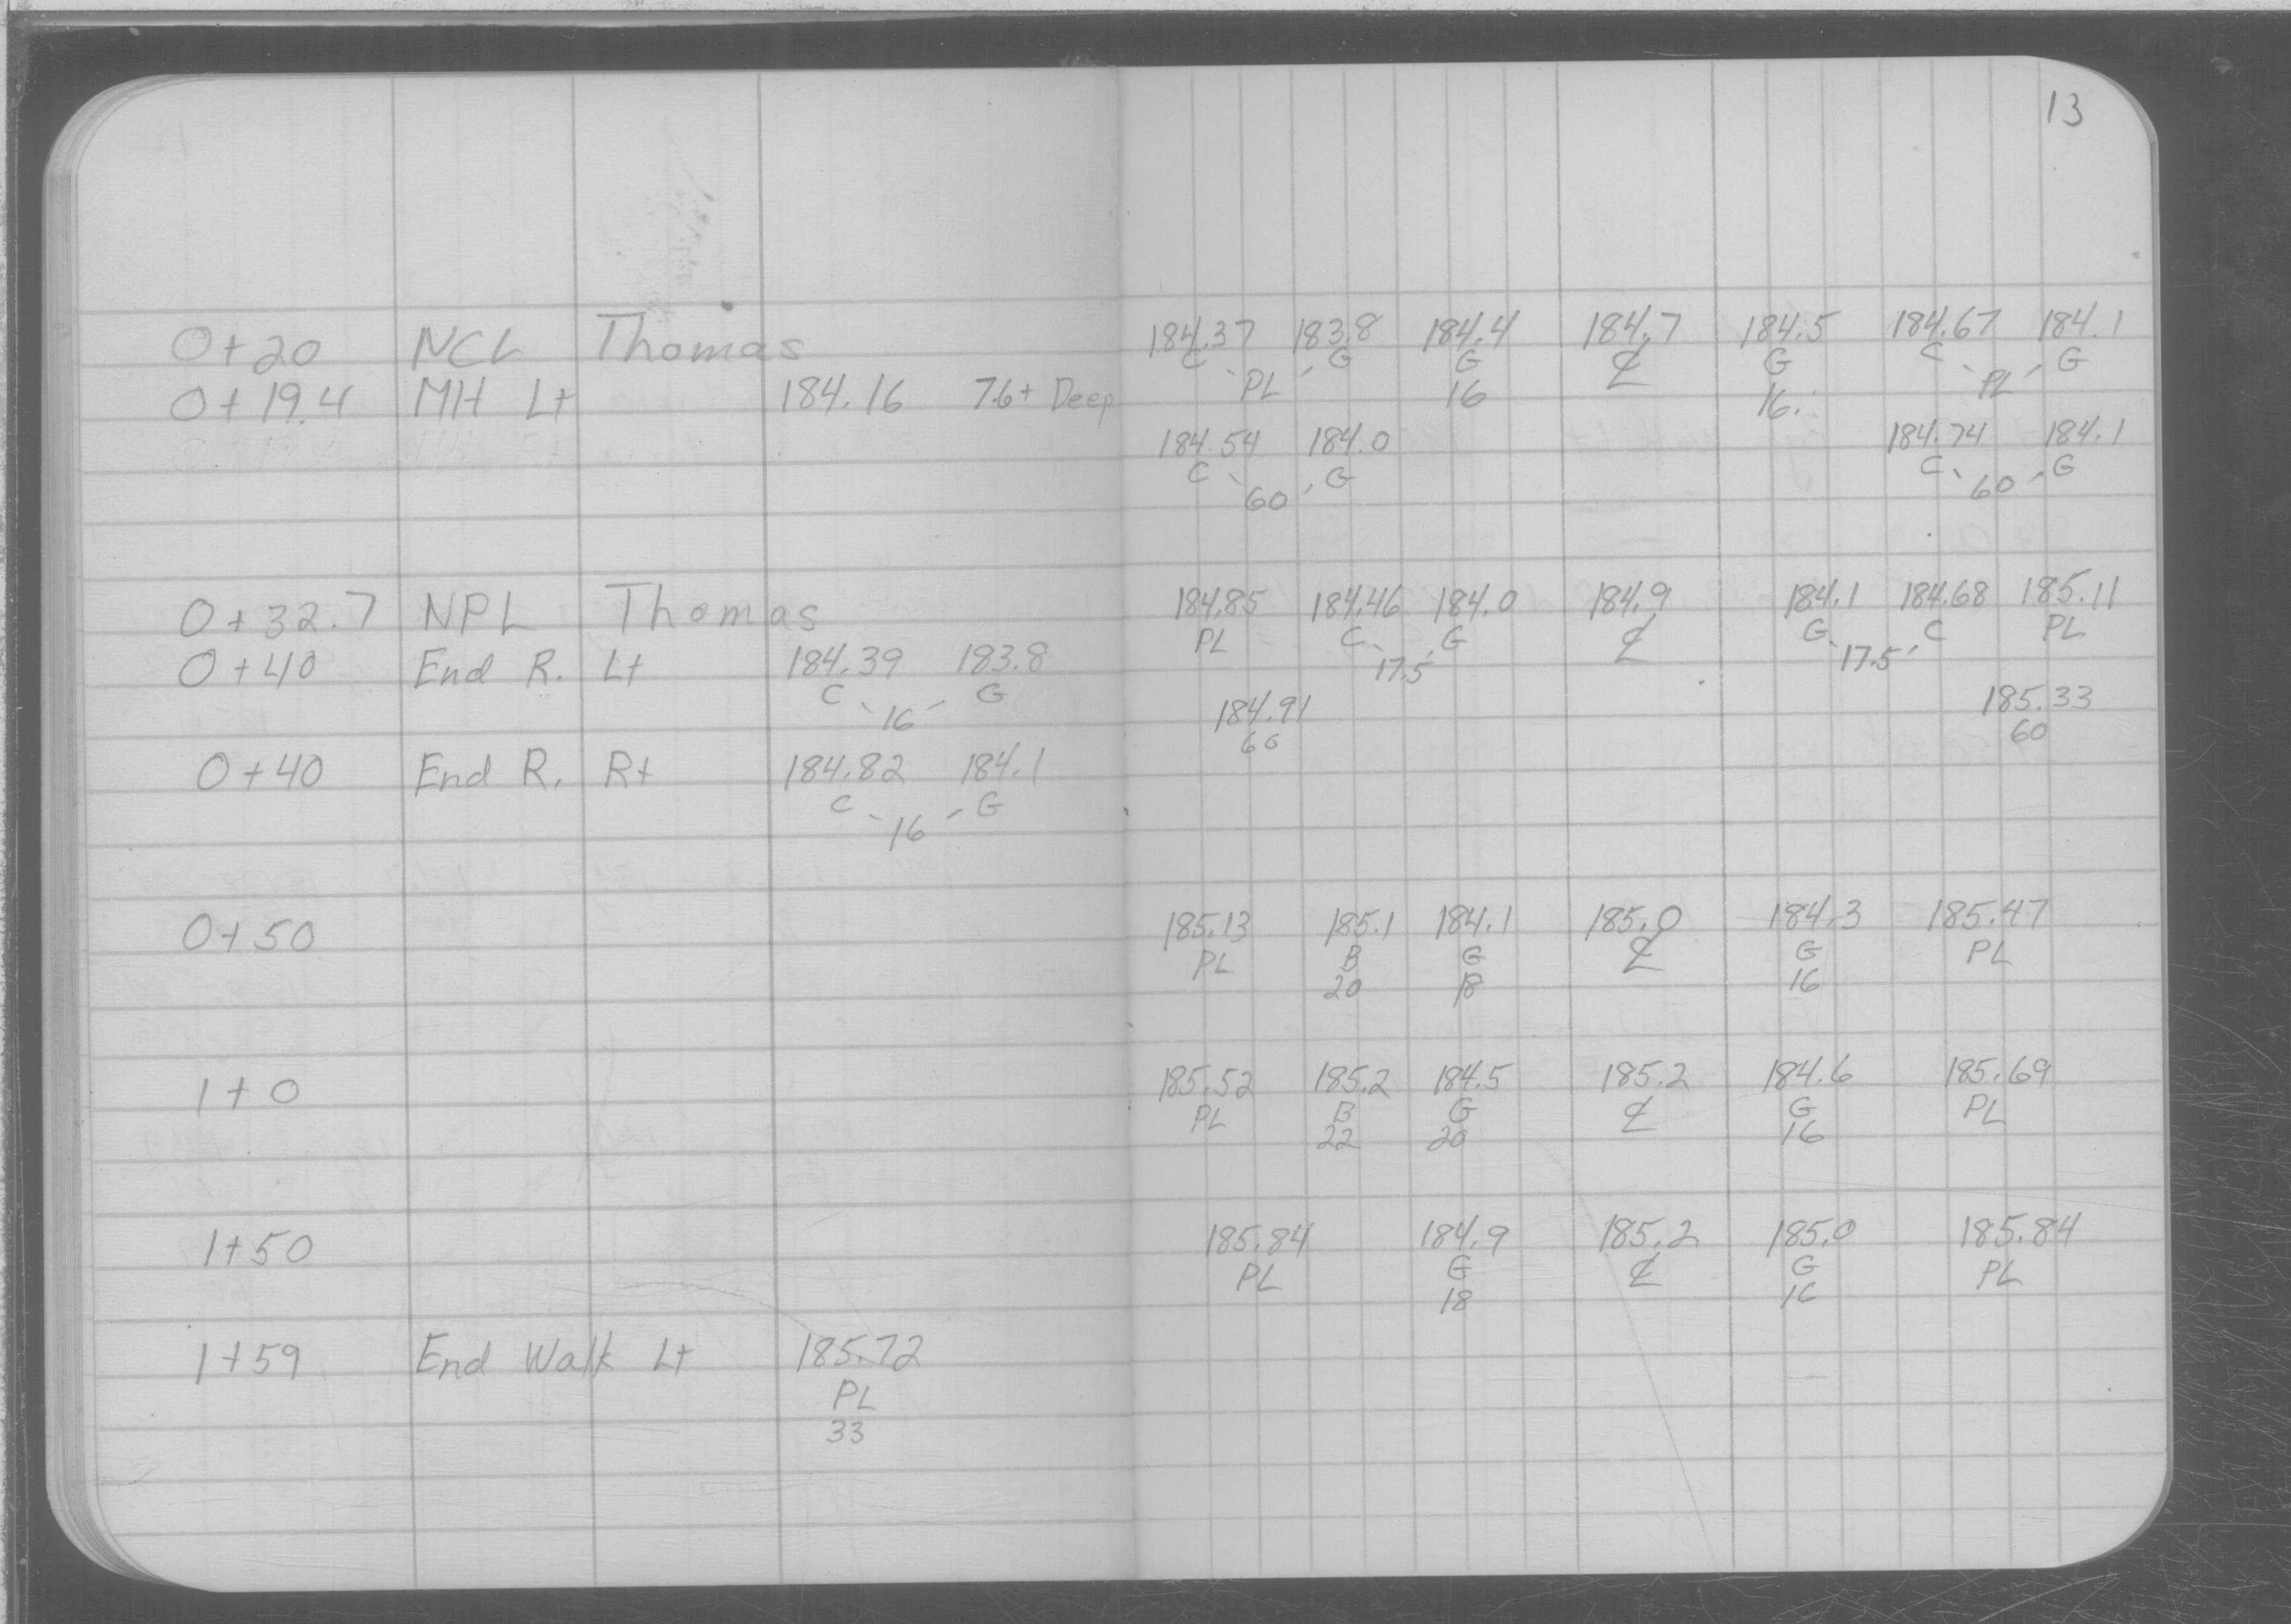 13
0+20 NCL Thomas 184.37 183.8 184.4 184.7 184.5 184.67 184.1
C G G ℄ G C G
0+19.4 MH Lt 184.16 7.6+ Deep PL 16 16. PL
184.54 184.0 184.74 184.1
C G C G
60 60
0+32.7 NPL Thomas 184.85 184.46 184.0 184.9 184.1 184.68 185.11
PL C G ℄ G C PL
0+40 End R. Lt 184.39 183.8 17.5 17.5
C G 184.91 185.33
16 60 60
0+40 End R. Rt 184.82 184.1
C G
16
0+50 185.13 185.1 184.1 185.0 184.3 185.47
PL B G ℄ G PL
20 18 16
1+0 185.52 185.2 184.5 185.2 184.6 185.69
PL B G ℄ G PL
22 20 16
1+50 185.84 184.9 185.2 185.0 185.84
PL G ℄ G PL
18 16
1+59 End Walk Lt 185.72
PL
33